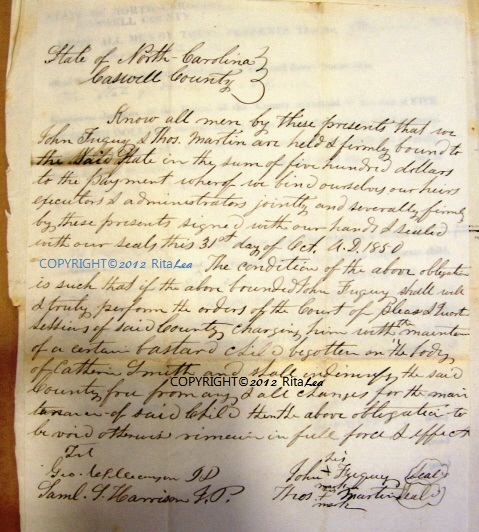 State of North-Carolina
Caswell County
Know all men by these presents that we
John Fuguy & Thos. Martin are held & firmly bound to
the said State in the sum of five hundred dollars
to the payment wherof we bind ourselves our heirs
executors & administrators jointly and severally firmly
by these presents signed with our hands & sealed
with our seals this 31st day of Oct. A.D. 1850
COPYRIGHT©2012 RitaLea
The condition of the above obligation
is such that if the above bounded John Fuguy shall well
& truly perform the orders of the Court of Pleas & Quart
sessions of said County charging him with the mainten
of a certain bastard child begotten on the body
of Catherin Smith and shall indemnify the said
COPYRIGHT©2012 RitaLea
County free from any & all charges for the main
tenance of said Child then the above obligation to
be void otherwise remain in full force & effect
Test
Geo. J.P.
Saml. Harrison J.P.
his
John Fuguy (seal)
mark
Thos. Martin (seal)
mark